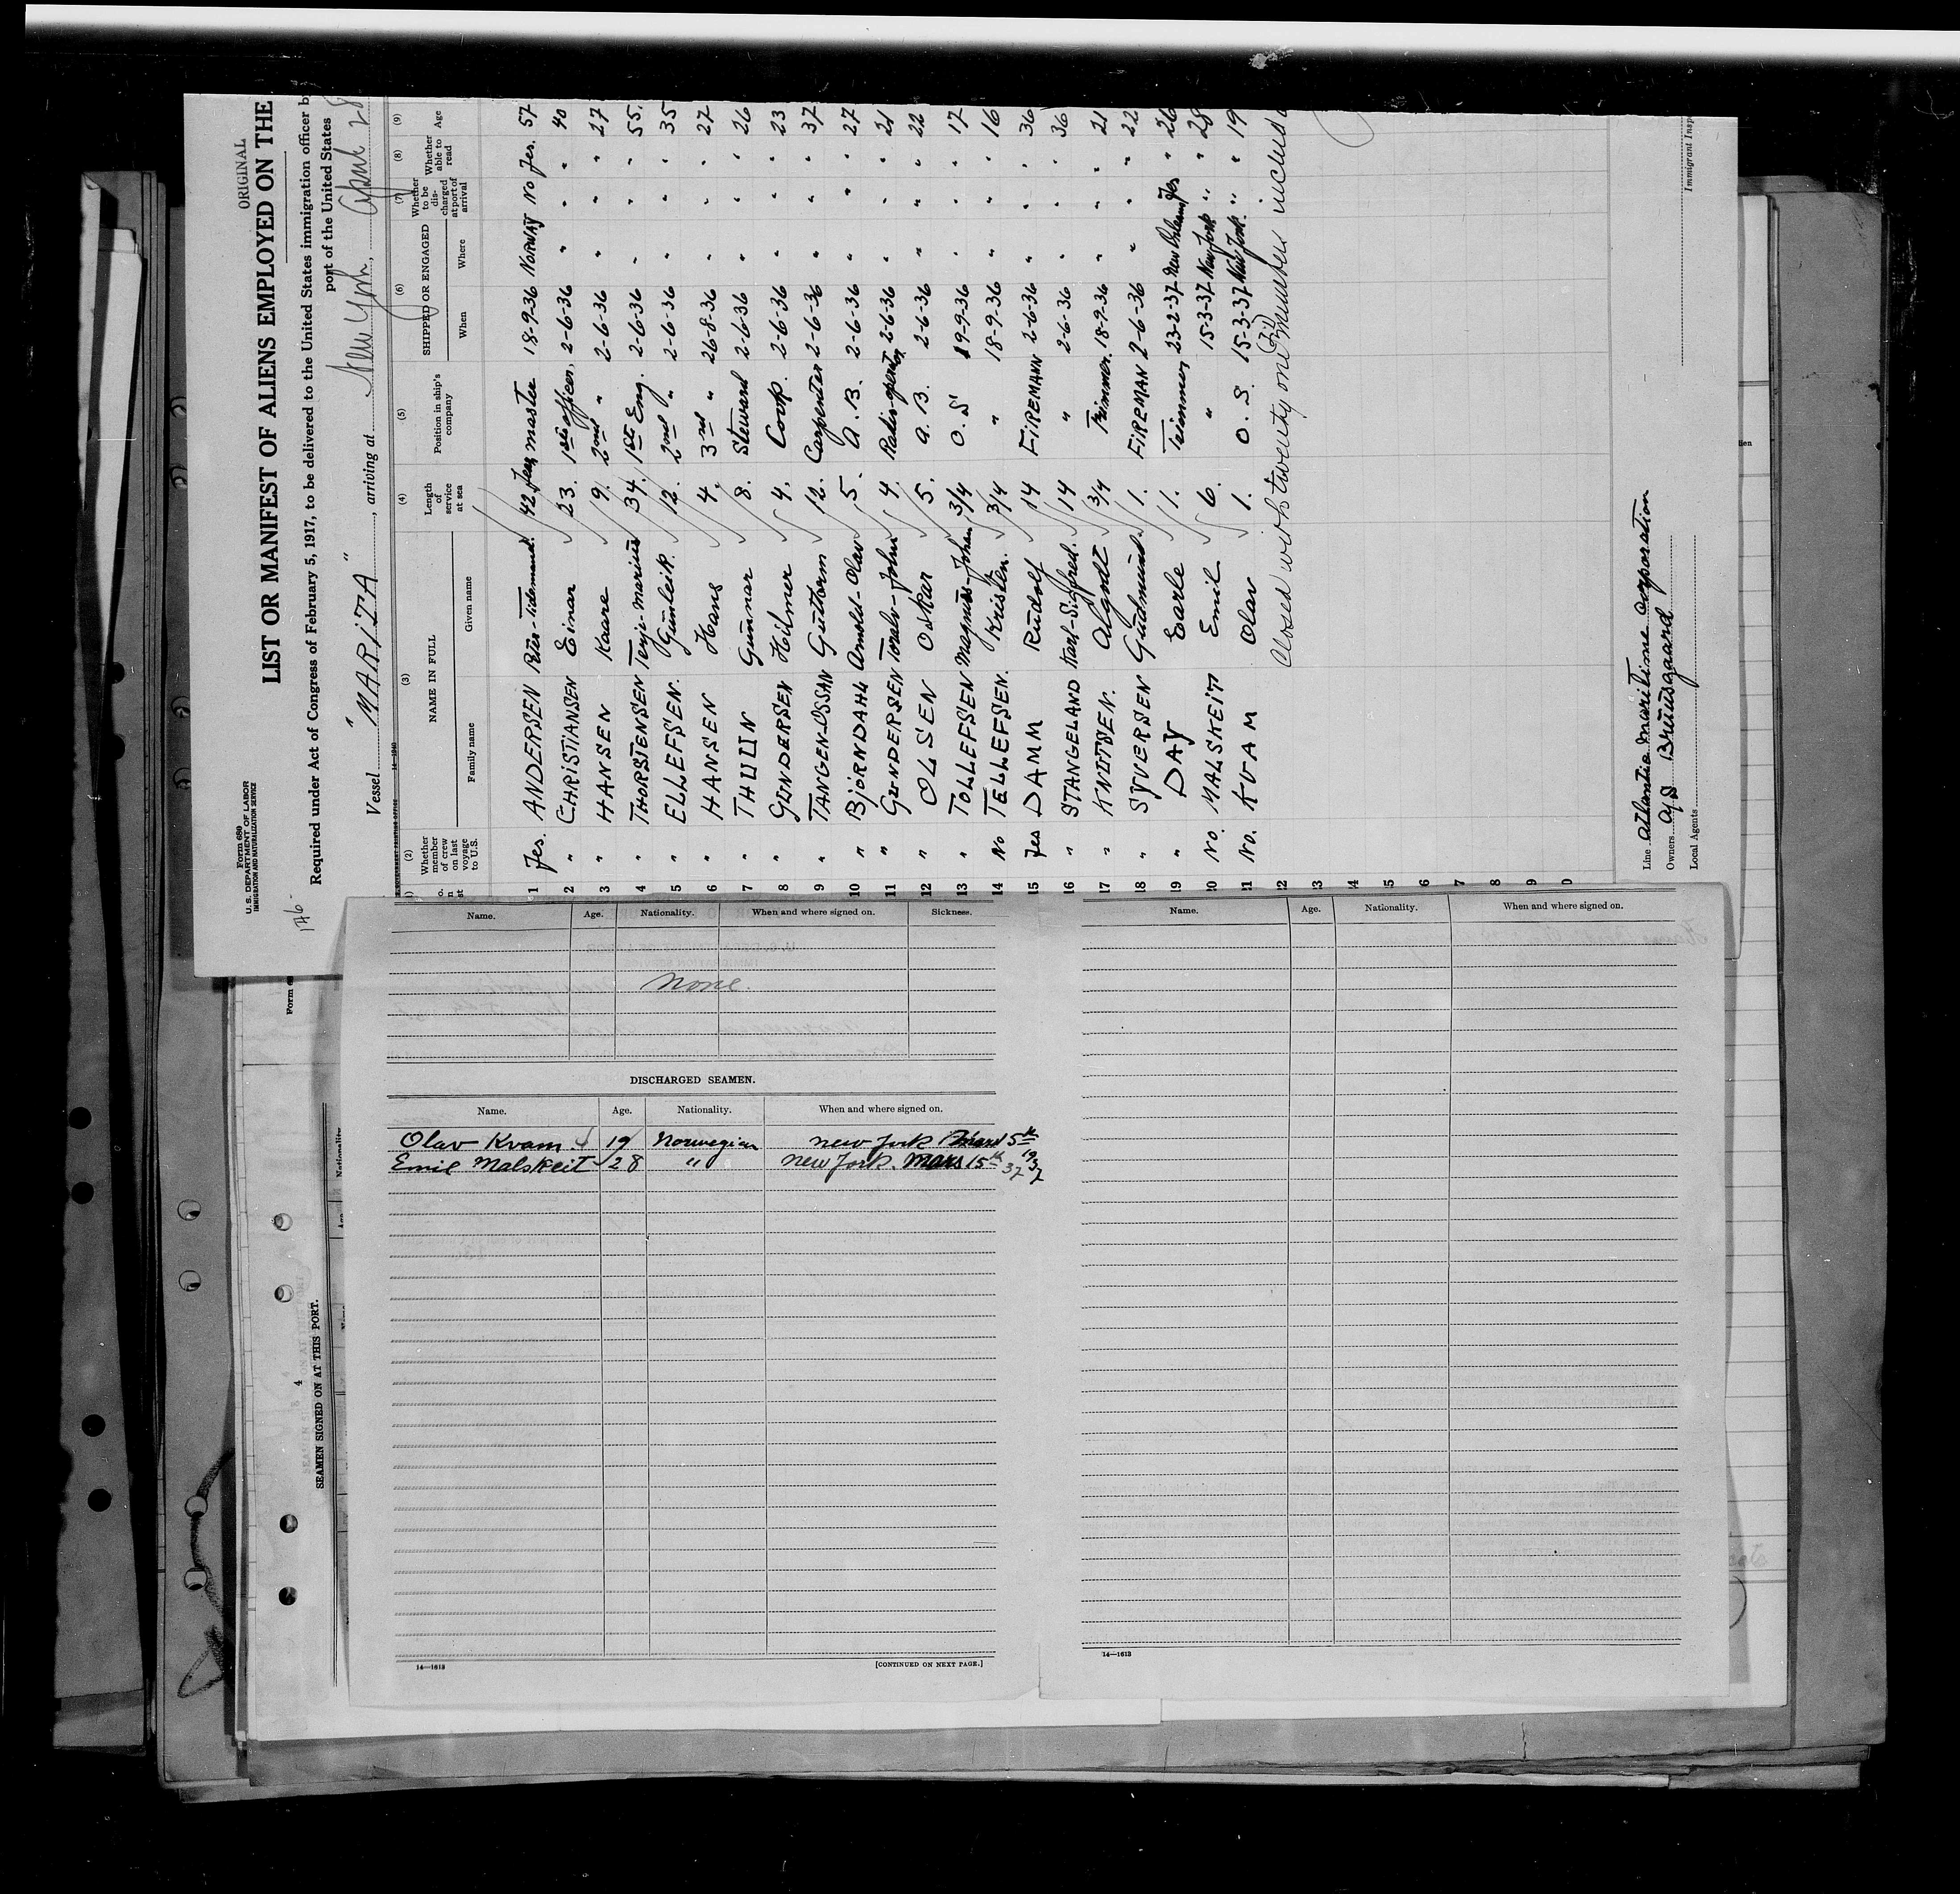 ORIGINAL
Form 680
U. S. DEPARTMENT OF LABOR
IMMIGRATION AND NATURALIZATION SERVICE
LIST OR MANIFEST OF ALIENS EMPLOYED ON THE
Required under Act of Congress of February 5, 1917, to be delivered to the United States immigration officer b
port of the United States
Vessel "MARITA", arriving at New York, April 28
(2) (3) (4) (5) (6) (7) (8) (9)
Whether member of crew on last voyage to U.S. NAME IN FULL Length of service at sea Position in ship's company SHIPPED OR ENGAGED Whether to be discharged at port of arrival Whether able to read Age
Family name Given name When Where
1 Yes. ANDERSEN Peter-Tidemand. 42 Years master 18-9-36 NORWAY no Yes. 57
2 " CHRISTIANSEN Einar 23. 1st officer, 2-6-36 " " " 40
3 " HANSEN Kaare 9. 2nd " 2-6-36 " " " 27
4 " THORSTENSEN Terje-Marius 34. 1st Eng. 2-6-36 " " " 55.
5 " ELLEFSEN. Gunleik. 12. 2nd " 2-6-36 " " " 35
6 " HANSEN Hans 4. 3rd " 26-8-36 " " " 27
7 " THULIN Gunnar 8. Steward 2-6-36 " " " 26
8 " GUNDERSEN Hilmer 4. Cook. 2-6-36 " " " 23
9 " TANGEN-OSSAN Guthorm 12. Carpenter 2-6-36 " " " 37
10 " BJÖRNDAHL Arnold-Olav 5. A. B. 2-6-36 " " " 27
11 " GUNDERSEN Toralv-John 4. Radio-operator 2-6-36 " " " 21
12 " OLSEN Oskar 5. A. B. 2-6-36 " " " 22
13 " TOLLEFSEN Magnus-Johan 3/4 O. S 19-9-36 " " " 17
14 No TELLEFSEN. Kristen. 3/4 " 18-9-36 " " " 16
15 Yes DAMM Rudolf 14 FIREMANN 2-6-36 " " " 36
16 " STANGELAND Karl-Sigfred. 14 " 2-6-36 " " " 36
17 " KNUTSEN. 3/4 Trimmer. 18-9-36 " " " 21
18 " SYVERSEN Gudmund. 1. FIREMAN 2-6-36 " " " 22
19 " DAY Earle 1. Trimmer, 23-2-37 New Orleans Yes " 26
20 No. MALSKEIT Emil 6. " 15-3-37 New York " " 28
21 No. KVAM Olav 1. O. S. 15-3-37 New York. " " 19
22 Closed with twenty one members included
23
24
25
26
27
28
29
30
Line Atlantic maritime Corporation
Owners A/S Bruusgaard
Local Agents
Immigrant Insp
Name. Age. Nationality. When and where signed on. Sickness.
None.
DISCHARGED SEAMEN.
Name. Age. Nationality. When and where signed on.
Olav Kvam. 19 Norwegian new York 5th
Emil Malskeit 28 " new York. Mars 15th 37
14—1613
[CONTINUED ON NEXT PAGE.]
Name. Age. Nationality. When and where signed on.
14—1613
4
SEAMEN SIGNED ON AT THIS PORT.
Nationality